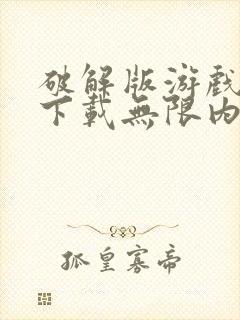 破解版游戲
下載無限内
孤皇寡帝